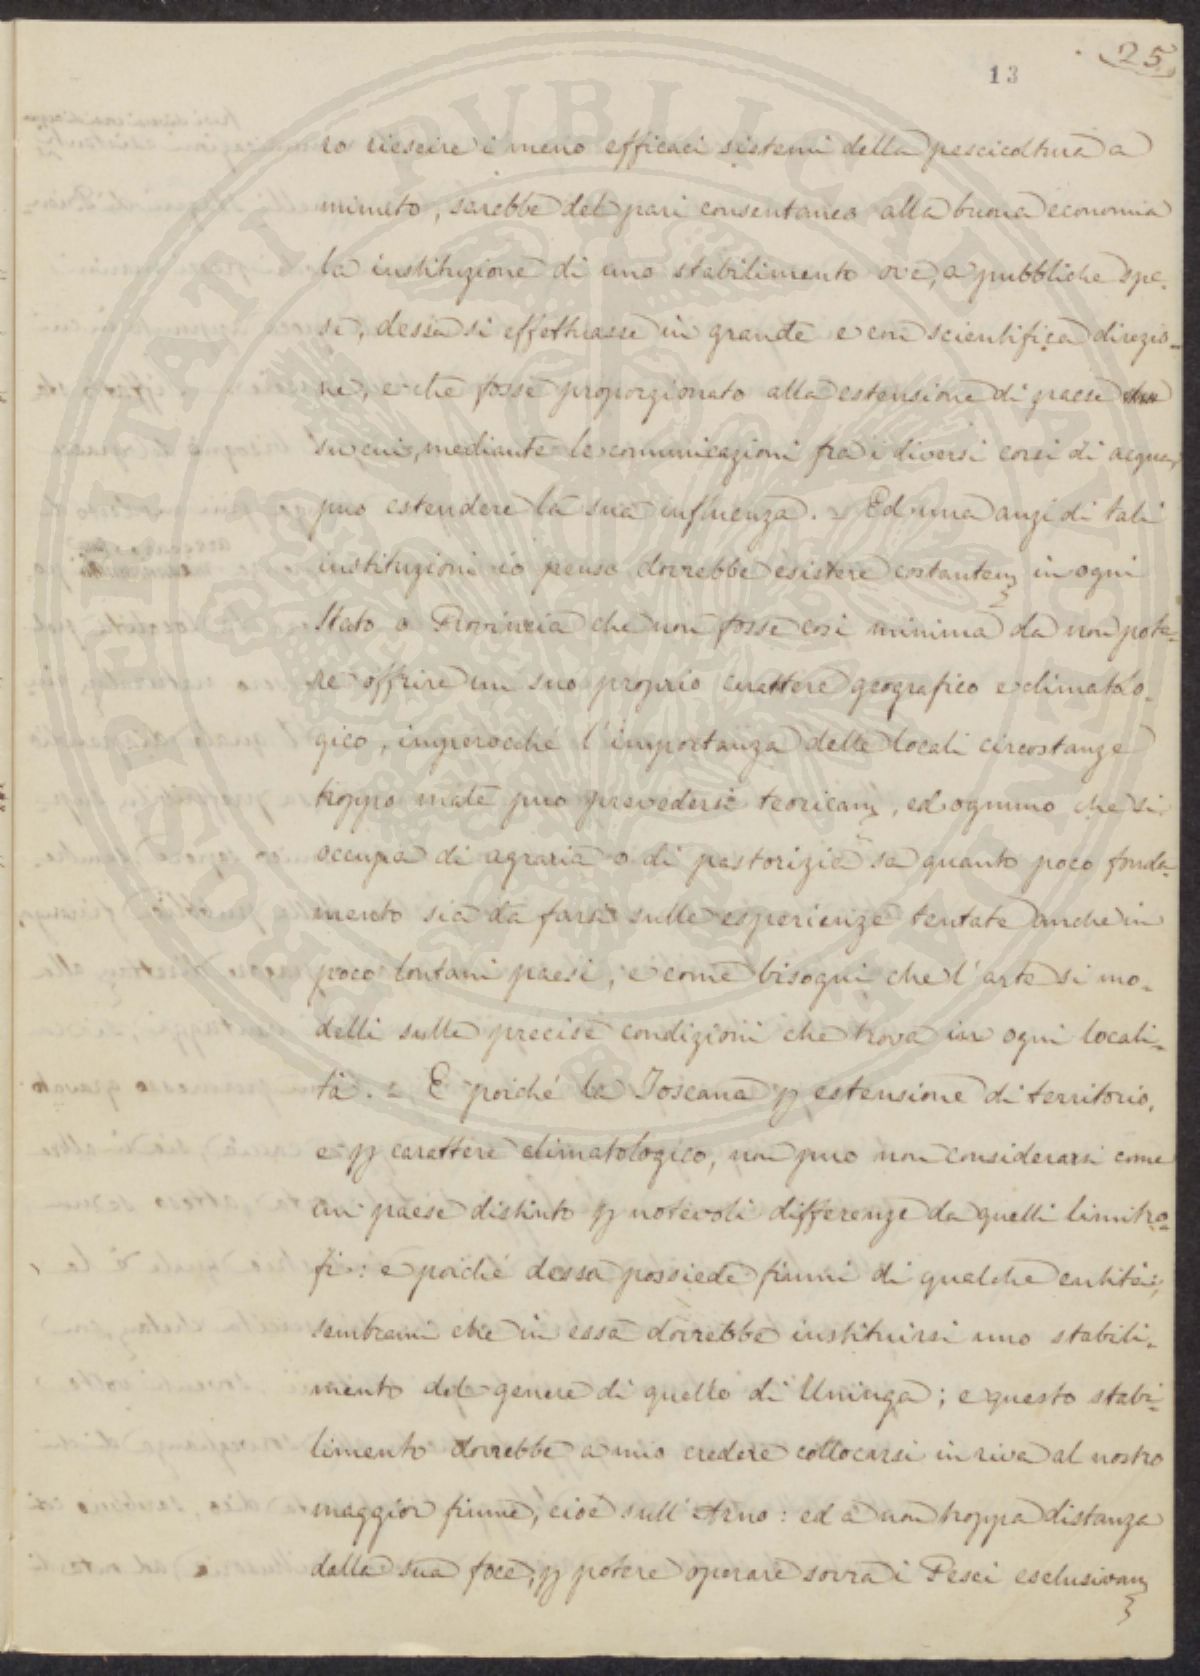 25
13
ro riescire i meno efficaci sistemi della pescicoltura a
minuto, sarebbe del pari consentaneo alla buona economia
la instituzione di uno stabilimento ove, a pubbliche spe-
se, dessa si effettuasse in grande e con scientifica direzio-
ne, e che fosse proporzionato alla estensione di paese
su cui, mediante le comunicazioni fra i diversi corsi di acqua,
può estendere la sua influenza. = Ed una anzi di tali
instituzioni io penso dovrebbe esistere costantem in ogni
Stato o Provincia che non fosse così minima da non pote-
re offrire un suo proprio carattere geografico e climatolo-
gico, imperocché l'importanza delle locali circostanze
troppo male può prevedersi teoricam, ed ognuno che si
occupa di agraria o di pastorizia sa quanto poco fonda-
mento sia da farsi sulle esperienze tentate anche in
poco lontani paesi, e come bisogni che l'arte si mo-
delli sulle precise condizioni che trova in ogni locali-
tà. = E poiché la Toscana p estensione di territorio,
e p carattere climatologico, non può non considerarsi come
un paese distinto p notevoli differenze da quelli limitro-
fi: e poiché dessa possiede fiumi di qualche entità;
sembrami che in essa dovrebbe instituirsi uno stabili-
mento del genere di quello di Uninga; e questo stabi-
limento dovrebbe a mio credere collocarsi in riva al nostro
maggior fiume, cioè sull'Arno: ed a non troppa distanza
dalla sua foce, p potere operare sovra i Pesci esclusivam
BIBLIOTHECAE PUBLICAE